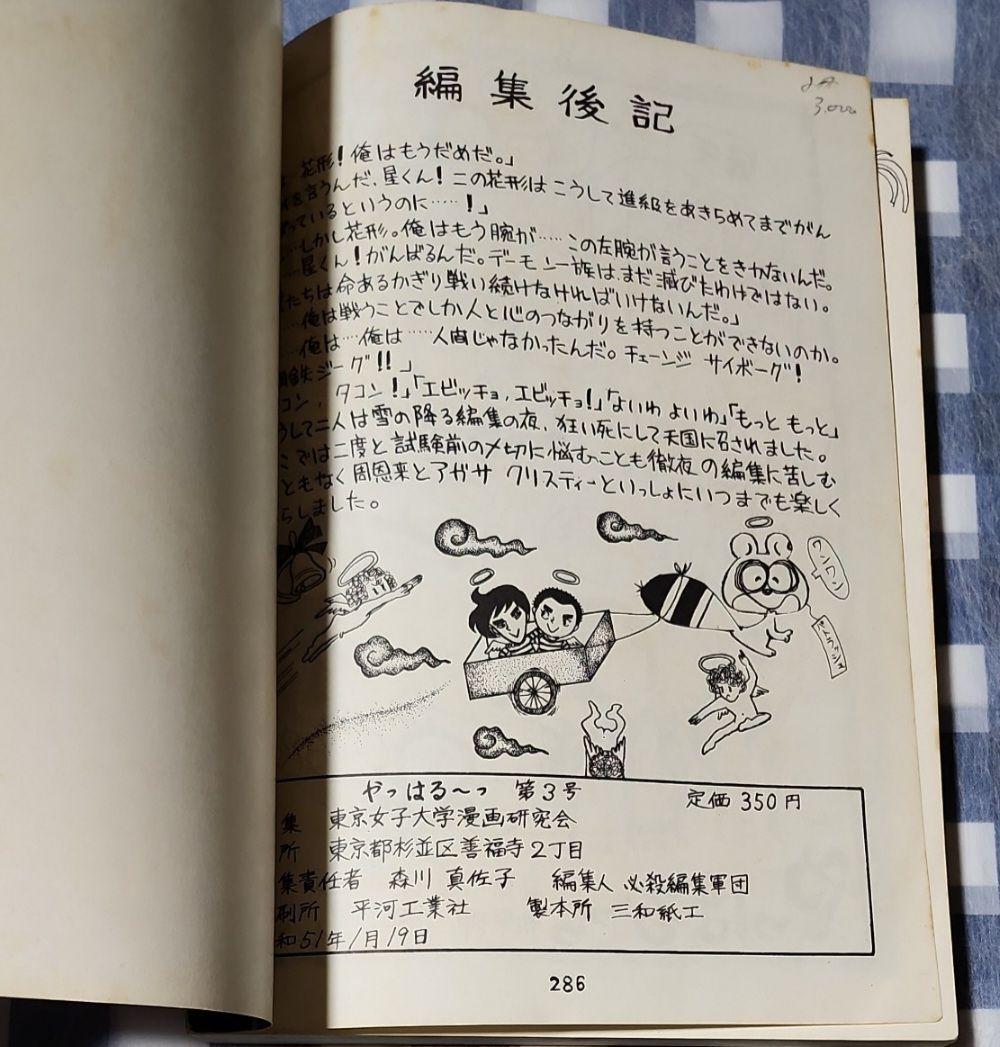 編集後記
3,000
花形！俺はもうだめだ。」
を言うんだ、星くん！この花形はこうして進級をあきらめてまでがん
っているというのに……！」
…しかし花形。俺はもう腕が……この左腕が言うことをきかないんだ。
…星くん！がんばるんだ。デーモン一族はまだ滅びたわけではない。
たちは命あるかぎり戦い続けなければいけないんだ。」
…俺は戦うことでしか人と心のつながりを持つことができないのか。
…俺は…俺は……人間じゃなかったんだ。チェーンジ サイボーグ！
鉄ジーグ！！」
コン、タコン！」「エビッチョ，エビッチョ！」「よいわ よいわ」「もっと もっと」
うして二人は雪の降る編集の夜、狂い死にして天国に召されました。
こでは二度と試験前の〆切に悩むことも徹夜の編集に苦しむ
ともなく周恩来とアガサ クリスティーといっしょにいつまでも楽しく
らしました。
ワンワン
やっはる〜っ 第3号 定価 350円
集 東京女子大学漫画研究会
所 東京都杉並区善福寺2丁目
集責任者 森川 真佐子 編集人 必殺編集軍団
刷所 平河工業社 製本所 三和紙工
和51年1月19日
286